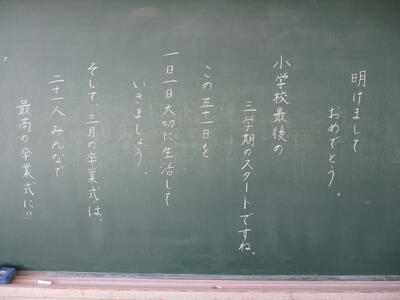 明けまして
おめでとう。
小学校最後の
三学期のスタートですね。
この五十一日を
一日一日大切に生活して
いきましょう。
そして、三月の卒業式は、
二十一人みんなで
最高の卒業式に!!